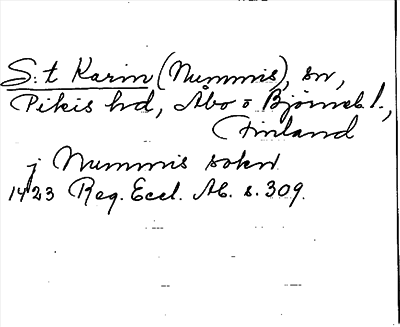 S:t Karin (Nummis), sn,
Pikis hd, Åbo o Björneb. l.,
Finland
j Nummis sokn
1423 Reg. Eccl. Ab. s. 309.